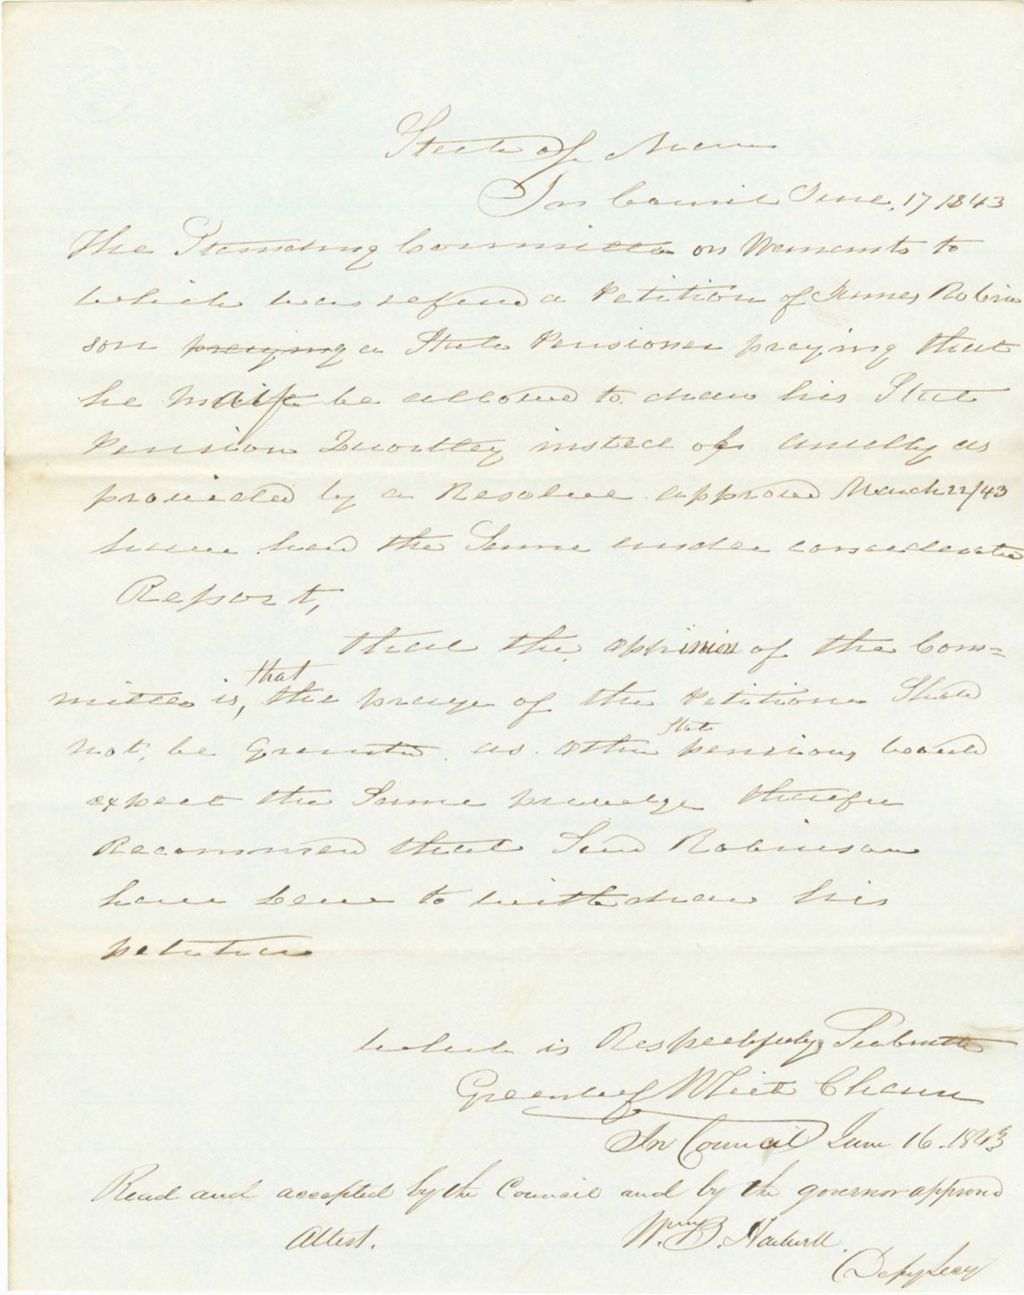 State of Maine
In Council June, 17 1843
The Standing Committee on Warrants to
which was refered a Petition of James Robin
son praying a State Pensioner praying that
he may be allowed to draw his State
Pension instead of as
provided by a Resolve approved March 22/43
have had the Same under consideration
Report,
that the oppinion of the Com=
mittee is, that the prayer of the Petitioner Should
not, be Granted as other State pensions would
expect the Same therefore
Recommend that Said Robinson
have leave to withdraw his
petition
which is Respectfully Submitted
Greenleaf White Chairm
In Council June 16. 1843
Read and accepted by the Council and by the governor approved
Attest. Wm B. Hartwell.
Depy Secy